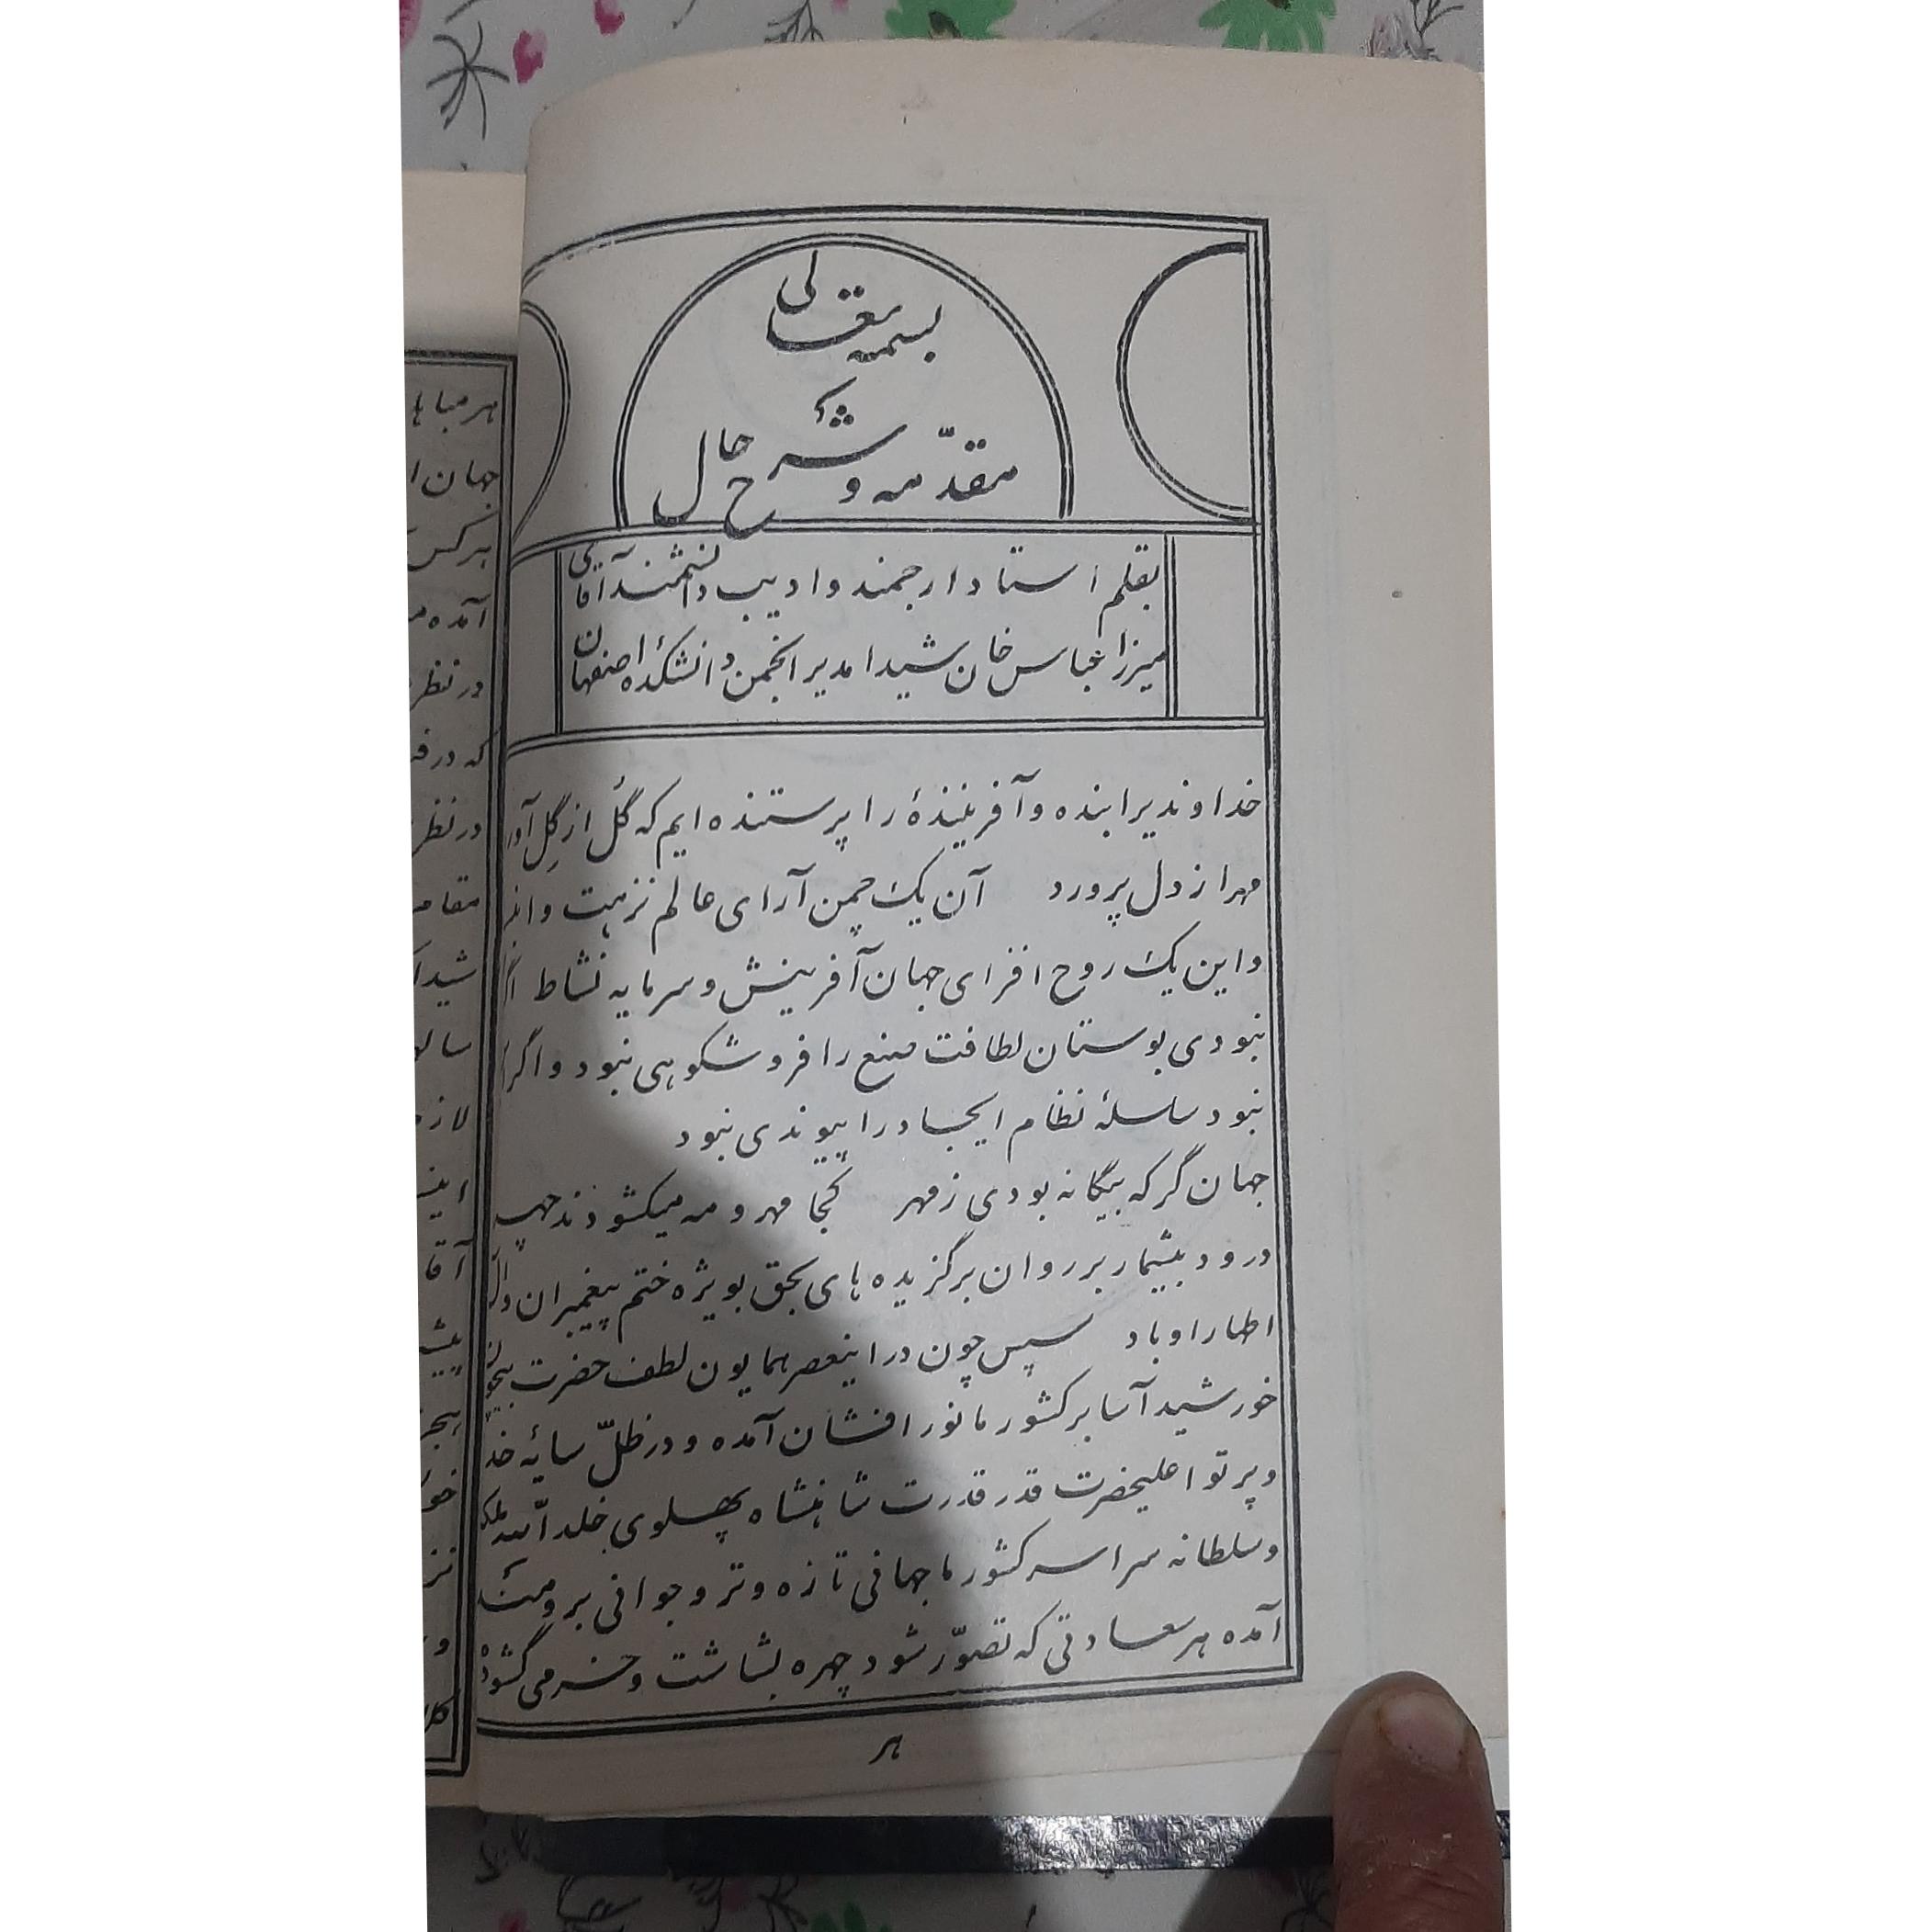 بسمه تعالی
مقدّمه و شرح حال
بقلم استاد ارجمند و ادیب دانشمند آقای
میرزا عباس خان شیدا مدیر انجمن دانشکدهٔ اصفهان
خداوندیرا بنده و آفرینندهٔ را پرستنده ایم که گُل از گِل آورد
مهر از دل پرورد آن یک چمن آرای عالم نزهت و
و این یک روح افزای جهان آفرینش و سرمایه نشاط
نبودی بوستان لطافت صنع را فر و شکوهی نبود و اگر
نبود سلسلهٔ نظام ایجاد را پیوندی نبود
جهان گر که بیگانه بودی ز مهر کجا مهر و مه میکشودند چهر
درود بیشمار بر روان برگزیده های بحق بویژه ختم پیغمبران و آل
اطهار او باد سپس چون در اینعصر همایون لطف حضرت بیچون
خورشید آسا بر کشور ما نور افشان آمده و در ظلّ سایهٔ خدا
و پرتو اعلیحضرت قدر قدرت شاهنشاه پهلوی خلد الله ملکه
و سلطانه سراسر کشور ما جهانی تازه و تر و جوانی برومند
آمده هر سعادتی که تصوّر شود چهره بشاشت و خرمی گشوده
هر
هر مباها
جهان ا
هر کس
آمده
در نظر
که در
در نظر
مقام
شیدا
آقا